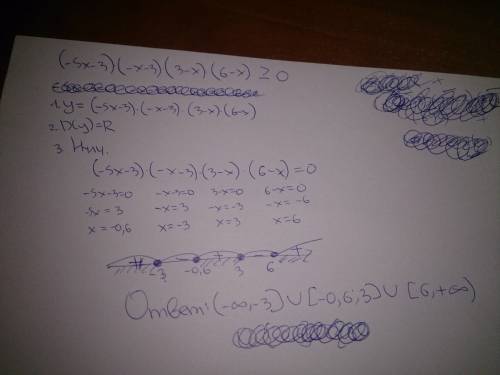 (-5x-3)(-x-3)(3-x)(6-x) ≥ 0
1. y = (-5x-3)·(-x-3)·(3-x)·(6-x)
2. D(y)=R
3. Нули.
(-5x-3)·(-x-3)·(3-x)·(6-x)=0
-5x-3=0 -x-3=0 3-x=0 6-x=0
-5x=3 -x=3 -x=-3 -x=-6
x=-0,6 x=-3 x=3 x=6
+ - + - +
-3 -0,6 3 6
Ответ: (-∞,-3)∪[-0,6;3)∪[6,+∞)